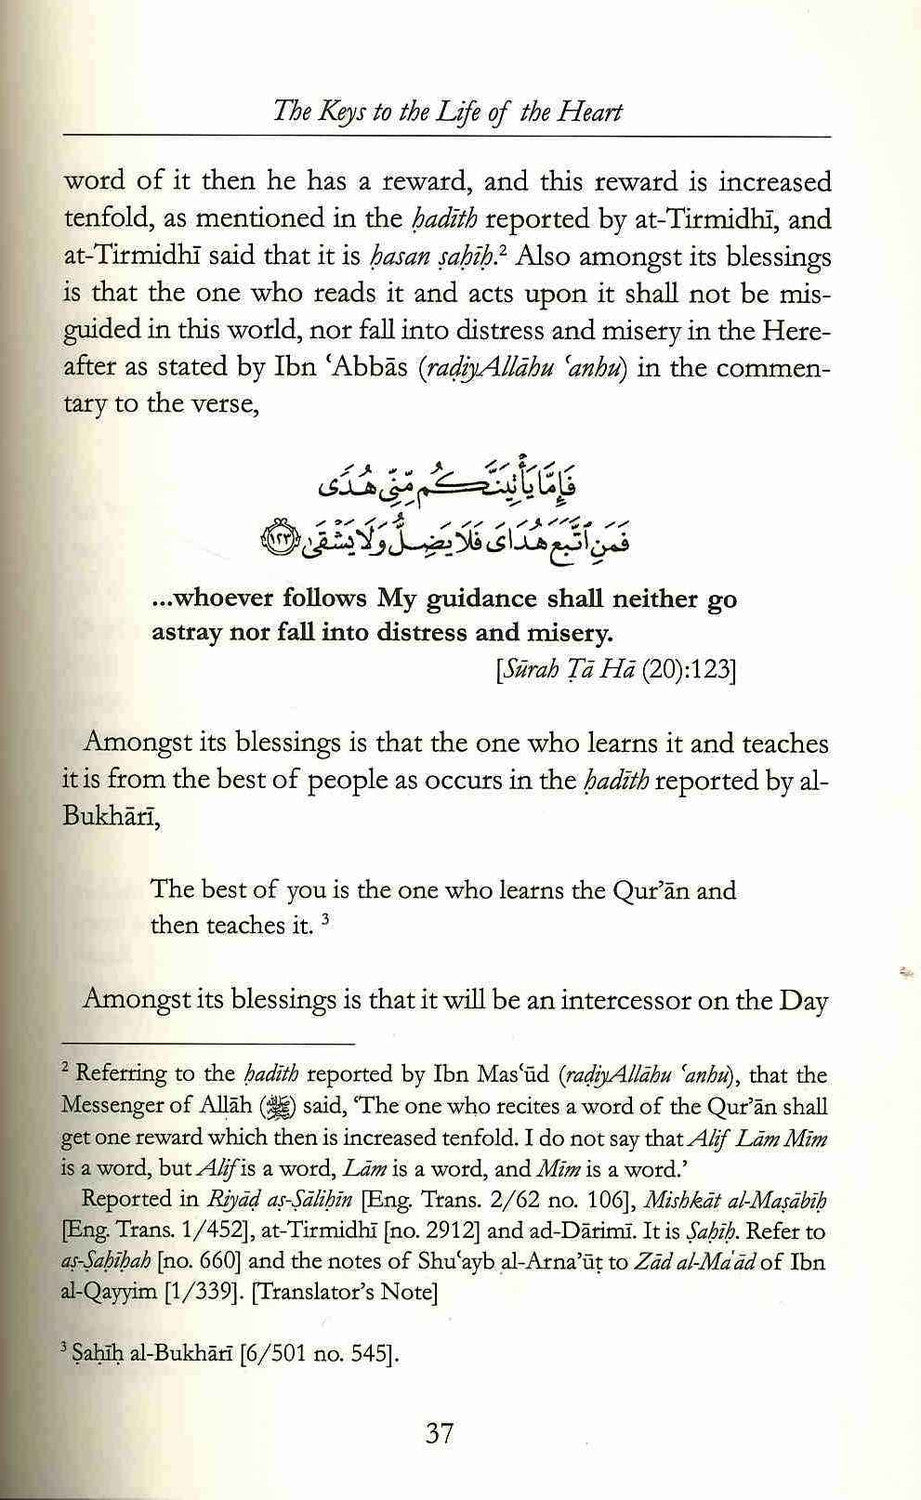 The Keys to the Life of the Heart
word of it then he has a reward, and this reward is increased
tenfold, as mentioned in the ḥadīth reported by at-Tirmidhī, and
at-Tirmidhī said that it is ḥasan ṣaḥīḥ.² Also amongst its blessings
is that the one who reads it and acts upon it shall not be mis-
guided in this world, nor fall into distress and misery in the Here-
after as stated by Ibn ‘Abbās (raḍiyAllāhu ‘anhu) in the commen-
tary to the verse,
فَإِمَّا يَأْتِيَنَّكُم مِّنِّي هُدًى
فَمَنِ ٱتَّبَعَ هُدَاىَ فَلَا يَضِلُّ وَلَا يَشْقَىٰ ١٢٣
...whoever follows My guidance shall neither go
astray nor fall into distress and misery.
[Sūrah Ṭā Hā (20):123]
Amongst its blessings is that the one who learns it and teaches
it is from the best of people as occurs in the ḥadīth reported by al-
Bukhārī,
The best of you is the one who learns the Qur’ān and
then teaches it. ³
Amongst its blessings is that it will be an intercessor on the Day
² Referring to the ḥadīth reported by Ibn Mas‘ūd (raḍiyAllāhu ‘anhu), that the
Messenger of Allāh (ﷺ) said, ‘The one who recites a word of the Qur’ān shall
get one reward which then is increased tenfold. I do not say that Alif Lām Mīm
is a word, but Alif is a word, Lām is a word, and Mīm is a word.’
Reported in Riyāḍ as-Ṣāliḥīn [Eng. Trans. 2/62 no. 106], Mishkāt al-Maṣābīḥ
[Eng. Trans. 1/452], at-Tirmidhī [no. 2912] and ad-Dārimī. It is Ṣaḥīḥ. Refer to
aṣ-Ṣaḥīḥah [no. 660] and the notes of Shu‘ayb al-Arna’ūṭ to Zād al-Ma‘ād of Ibn
al-Qayyim [1/339]. [Translator’s Note]
³ Ṣaḥīḥ al-Bukhārī [6/501 no. 545].
37